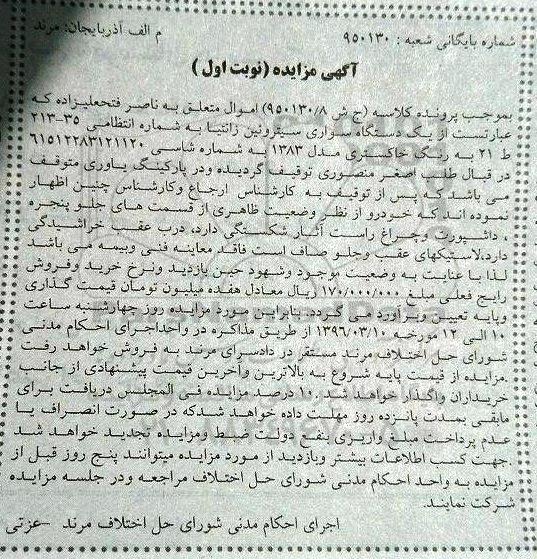 شماره بایگانی شعبه : ۹۵۰۱۳۰ م الف آذربایجان: مرند
آگهی مزایده (نوبت اول )
بموجب پرونده کلاسه (ج ش ۹۵۰۱۳۰/۸) اموال متعلق به ناصر فتحعلیزاده که
عبارتست از یک دستگاه سواری سیتروئین زانتیا به شماره انتظامی ۳۵-۲۱۳
ط ۲۱ به رنگ خاکستری مدل ۱۳۸۳ به شماره شاسی ۶۱۵۱۲۲۸۳۱۲۱۱۲۰
در قبال طلب اصغر منصوری توقیف گردیده ودر پارکینگ یاوری متوقف
می باشد که پس از توقیف به کارشناس ارجاع وکارشناس چنین اظهار
نموده اند که خودرو از نظر وضعیت ظاهری از قسمت های جلو پنجره
، داشپورت وچراغ راست آثار شکستگی دارد، درب عقب خراشیدگی
دارد،لاستیکهای عقب وجلو صاف است فاقد معاینه فنی وبیمه می باشد
لذا با عنایت به وضعیت موجود وشهود حین بازدید ونرخ خرید وفروش
رایج فعلی مبلغ ۱۷۰/۰۰۰/۰۰۰ ریال معادل هفده میلیون تومان قیمت گذاری
وپایه تعیین وبرآورد می گردد. بنابراین مورد مزایده روز چهارشنبه ساعت
۱۰ الی ۱۲ مورخه ۱۳۹۶/۰۳/۱۰ از طریق مذاکره در واحداجرای احکام مدنی
شورای حل اختلاف مرند مستقر در دادسرای مرند به فروش خواهد رفت
.مزایده از قیمت پایه شروع به بالاترین وآخرین قیمت پیشنهادی از جانب
خریداران واگذار خواهد شد. ۱۰ درصد مزایده فی المجلس دریافت برای
مابقی بمدت پانزده روز مهلت داده خواهد شدکه در صورت انصراف یا
عدم پرداخت مبلغ واریزی بنفع دولت ضبط ومزایده تجدید خواهد شد
.جهت کسب اطلاعات بیشتر وبازدید از مورد مزایده میتوانند پنج روز قبل از
مزایده به واحد احکام مدنی شورای حل اختلاف مراجعه ودر جلسه مزایده
شرکت نمایند.
اجرای احکام مدنی شورای حل اختلاف مرند –عزتی